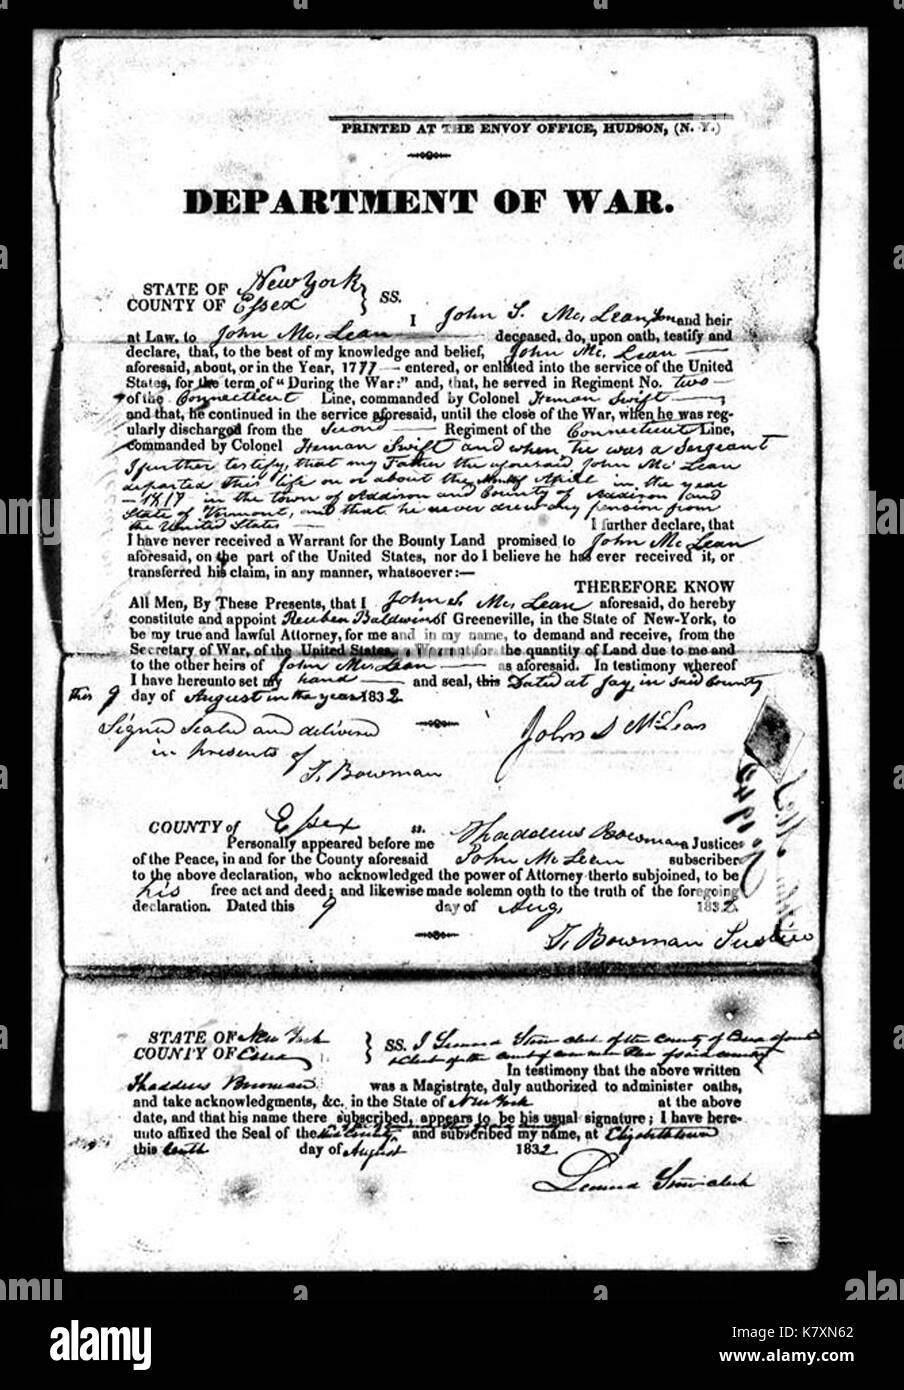 PRINTED AT THE ENVOY OFFICE, HUDSON, (N. Y.)
DEPARTMENT OF WAR.
STATE OF New York
COUNTY OF Essex } SS.
I John S. Mc Lean Son and heir
at Law, to John Mc Lean deceased, do, upon oath, testify and
declare, that, to the best of my knowledge and belief, John Mc Lean
aforesaid, about, or in the Year, 1777 entered, or enlisted into the service of the United
States, for the term of "During the War:" and, that, he served in Regiment No. two
of the Connecticut Line, commanded by Colonel Heman Swift
and that, he continued in the service aforesaid, until the close of the War, when he was reg-
ularly discharged from the Second Regiment of the Connecticut Line,
commanded by Colonel Heman Swift and when he was a Sergeant
I further testify, that my Father the aforesaid John Mc Lean
departed this life on or about the Month of April in the year
1817 in the town of Addison and County of Addison and
State of Vermont, and that he never drew any pension from
the United States I further declare, that
I have never received a Warrant for the Bounty Land promised to John Mc Lean
aforesaid, on the part of the United States, nor do I believe he has ever received it, or
transferred his claim, in any manner, whatsoever:—
THEREFORE KNOW
All Men, By These Presents, that I John S. Mc Lean aforesaid, do hereby
constitute and appoint Reuben Baldwin of Greeneville, in the State of New-York, to
be my true and lawful Attorney, for me and in my name, to demand and receive, from the
Secretary of War, of the United States, a Warrant for the quantity of Land due to me and
to the other heirs of John Mc Lean as aforesaid. In testimony whereof
I have hereunto set my hand and seal, this Dated at Jay, in said County
this 9 day of August in the year 1832
Signed Sealed and delivered
in presents of
T. Bowman
John S McLean
COUNTY of Essex ss.
Personally appeared before me Thaddeus Bowman a Justice
of the Peace, in and for the County aforesaid John Mc Lean subscriber
to the above declaration, who acknowledged the power of Attorney therto subjoined, to be
his free act and deed; and likewise made solemn oath to the truth of the foregoing
declaration. Dated this 9 day of Aug. 1832.
T. Bowman Justice
STATE OF New York
COUNTY OF Essex } SS. I clerk of the County of
clerk of the court of common Pleas of said county
In testimony that the above written
Thaddeus Bowman was a Magistrate, duly authorized to administer oaths,
and take acknowledgments, &c. in the State of New York at the above
date, and that his name there subscribed, appears to be his usual signature; I have here-
unto affixed the Seal of the said County and subscribed my name, at Elizabethtown
this tenth day of August 1832
alamy
Image ID: K7XN62
www.alamy.com